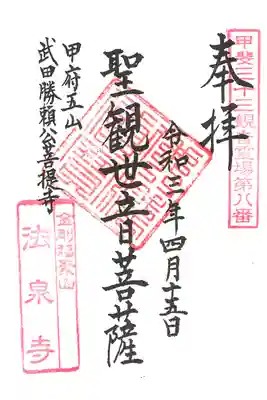 甲斐三十三観音霊場第八番
奉拝
令和三年四月十五日
聖観世音菩薩
甲府五山
武田勝頼公菩提寺
法泉寺